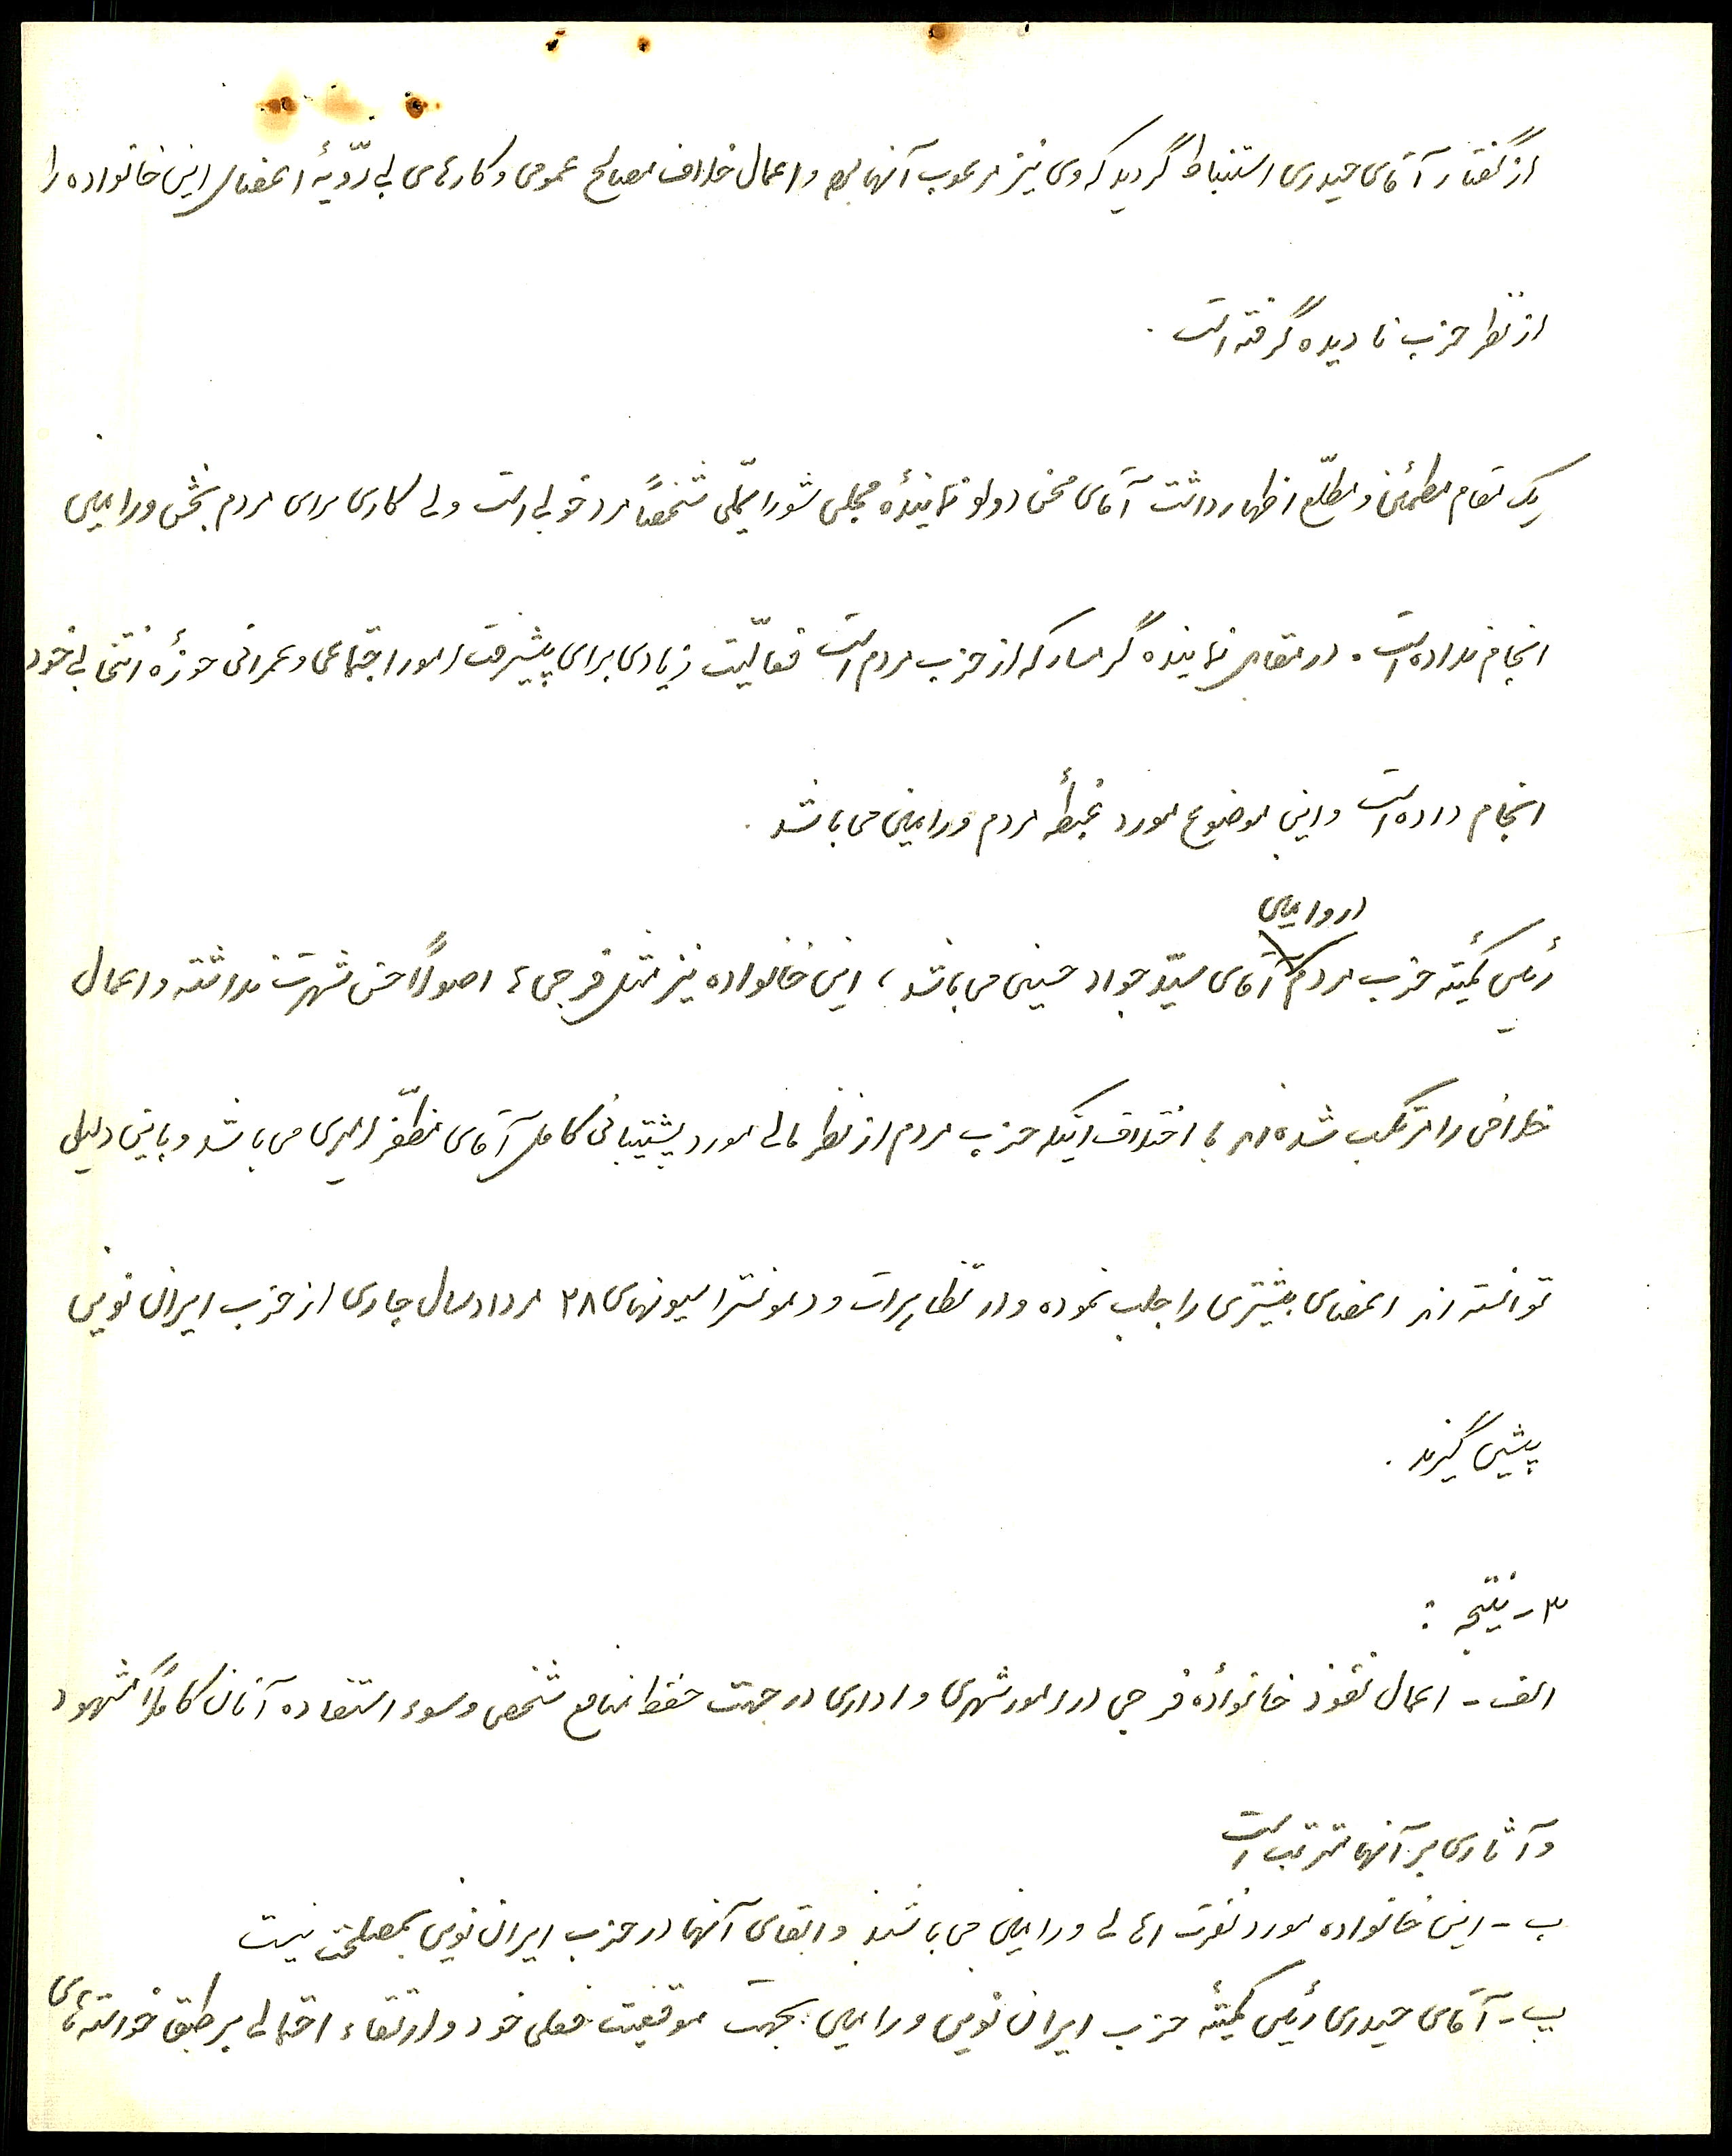 از گفتار آقای حیدری استنباط گردید که وی نیز مرعوب آنهابوده و اعمال خلاف مصالح عمومی و کارهای بی رویّهٔ اعضاء این خانواده را
از نظر حزب نادیده گرفته است .
یک مقام مطمئن و مطلّع اظهار داشت آقای محسن دولو نمایندهٔ مجلس شورایملّی شخصاً مرد خوبی است ولی کاری برای مردم بخش ورامین
انجام نداده است . در مقابل نماینده گرمسار که از حزب مردم است فعالّیت زیادی برای پیشرفت امور اجتماعی و عمرانی حوزهٔ انتخابی خود
انجام داده است و این موضوع مورد غبطهٔ مردم ورامین می باشد .
ورامین
رئیس کمیتهٔ حزب مردم آقای سیّد جواد حسینی می باشد ، این خانواده نیز مثل فرجی ها اصولاً حسن شهرت نداشته و اعمال
خلافی را مرتکب شده اند با اختلاف اینکه حزب مردم از نظر مالی مورد پشتیبانی کامل آقای مظفّر امیری می باشد و باین دلیل
توانسته اند اعضای بیشتری را جلب نموده و در تظاهرات و دمونستراسیونهای ۲۸ مرداد سال جاری از حزب ایران نوین
پیشی گیرند .
۳ - نتیجه :
الف - اعمال نفوذ خانوادهٔ فرجی در امور شهری و اداری در جهت حفظ منافع شخصی و سوء استفاده آنان کاملاً مشهود
و آثاری بر آنها مترتب است
ب - این خانواده مورد نفرت اهالی ورامین می باشند و ابقای آنها در حزب ایران نوین بمصلحت نیست
پ - آقای حیدری رئیس کمیتهٔ حزب ایران نوین ورامین بجهت موقعیت فعلی خود و ارتقاء احتمالی بر طبق خواسته های